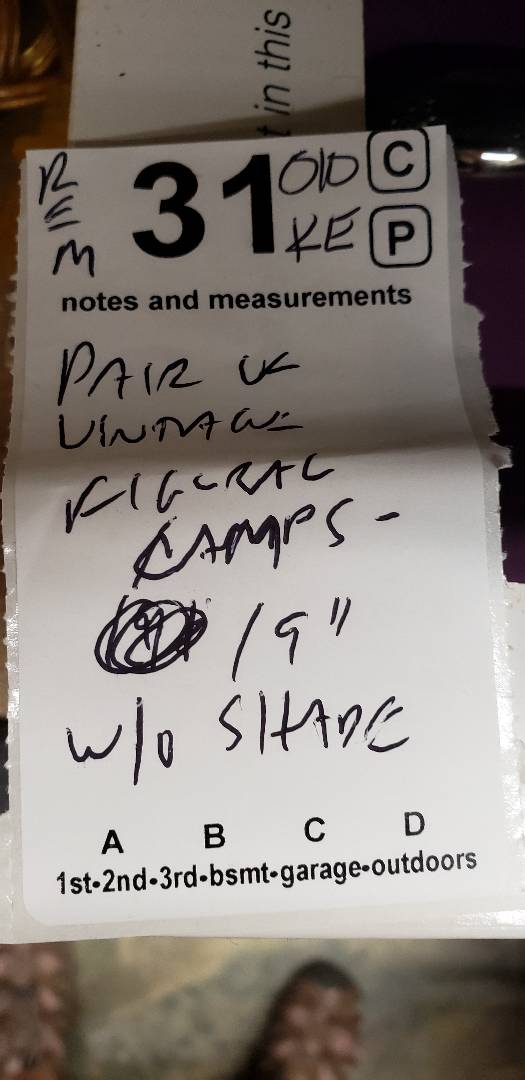 t in this
REM 31 OLD C
KE P
notes and measurements
PAIR OF
VINTAGE
FIGURAL
LAMPS -
19"
W/O SHADE
A B C D
1st-2nd-3rd-bsmt-garage-outdoors